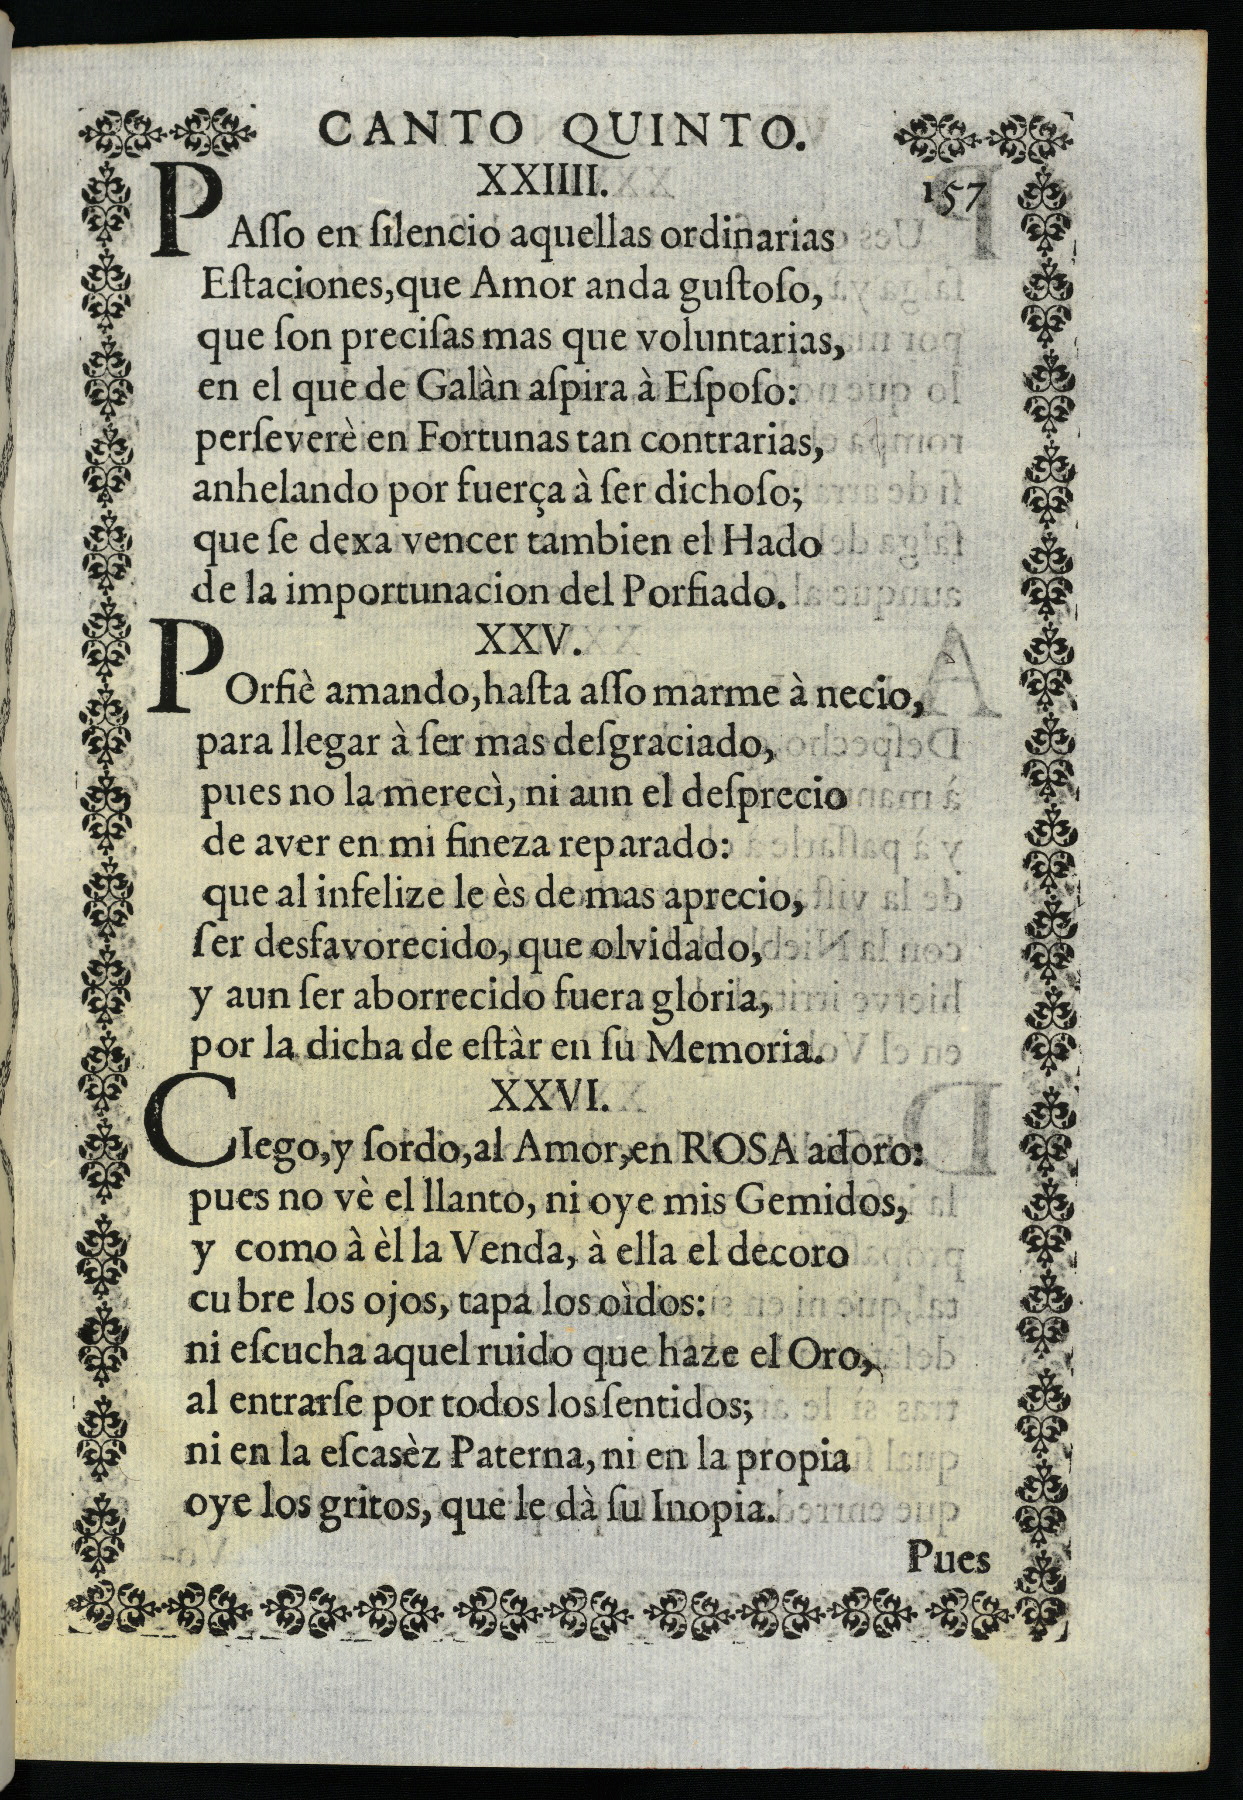 CANTO QUINTO.
XXIIII.
157
PAſſo en ſilencio aquellas ordinarias
Eſtaciones, que Amor anda guſtoſo,
que ſon preciſas mas que voluntarias,
en el que de Galàn aſpira à Eſpoſo:
perſeverè en Fortunas tan contrarias,
anhelando por fuerça à ſer dichoſo;
que ſe dexa vencer tambien el Hado
de la importunacion del Porfiado.
XXV.
POrfiè amando, haſta aſſo marme à necio,
para llegar à ſer mas deſgraciado,
pues no la merecì, ni aun el deſprecio
de aver en mi fineza reparado:
que al infelize le ès de mas aprecio,
ſer desfavorecido, que olvidado,
y aun ſer aborrecido fuera gloria,
por la dicha de eſtàr en ſu Memoria.
XXVI.
CIego, y ſordo, al Amor, en ROSA adoro:
pues no vè el llanto, ni oye mis Gemidos,
y como à èl la Venda, à ella el decoro
cubre los ojos, tapa los oìdos:
ni eſcucha aquel ruido que haze el Oro,
al entrarſe por todos los ſentidos;
ni en la eſcasèz Paterna, ni en la propia
oye los gritos, que le dà ſu Inopia.
Pues